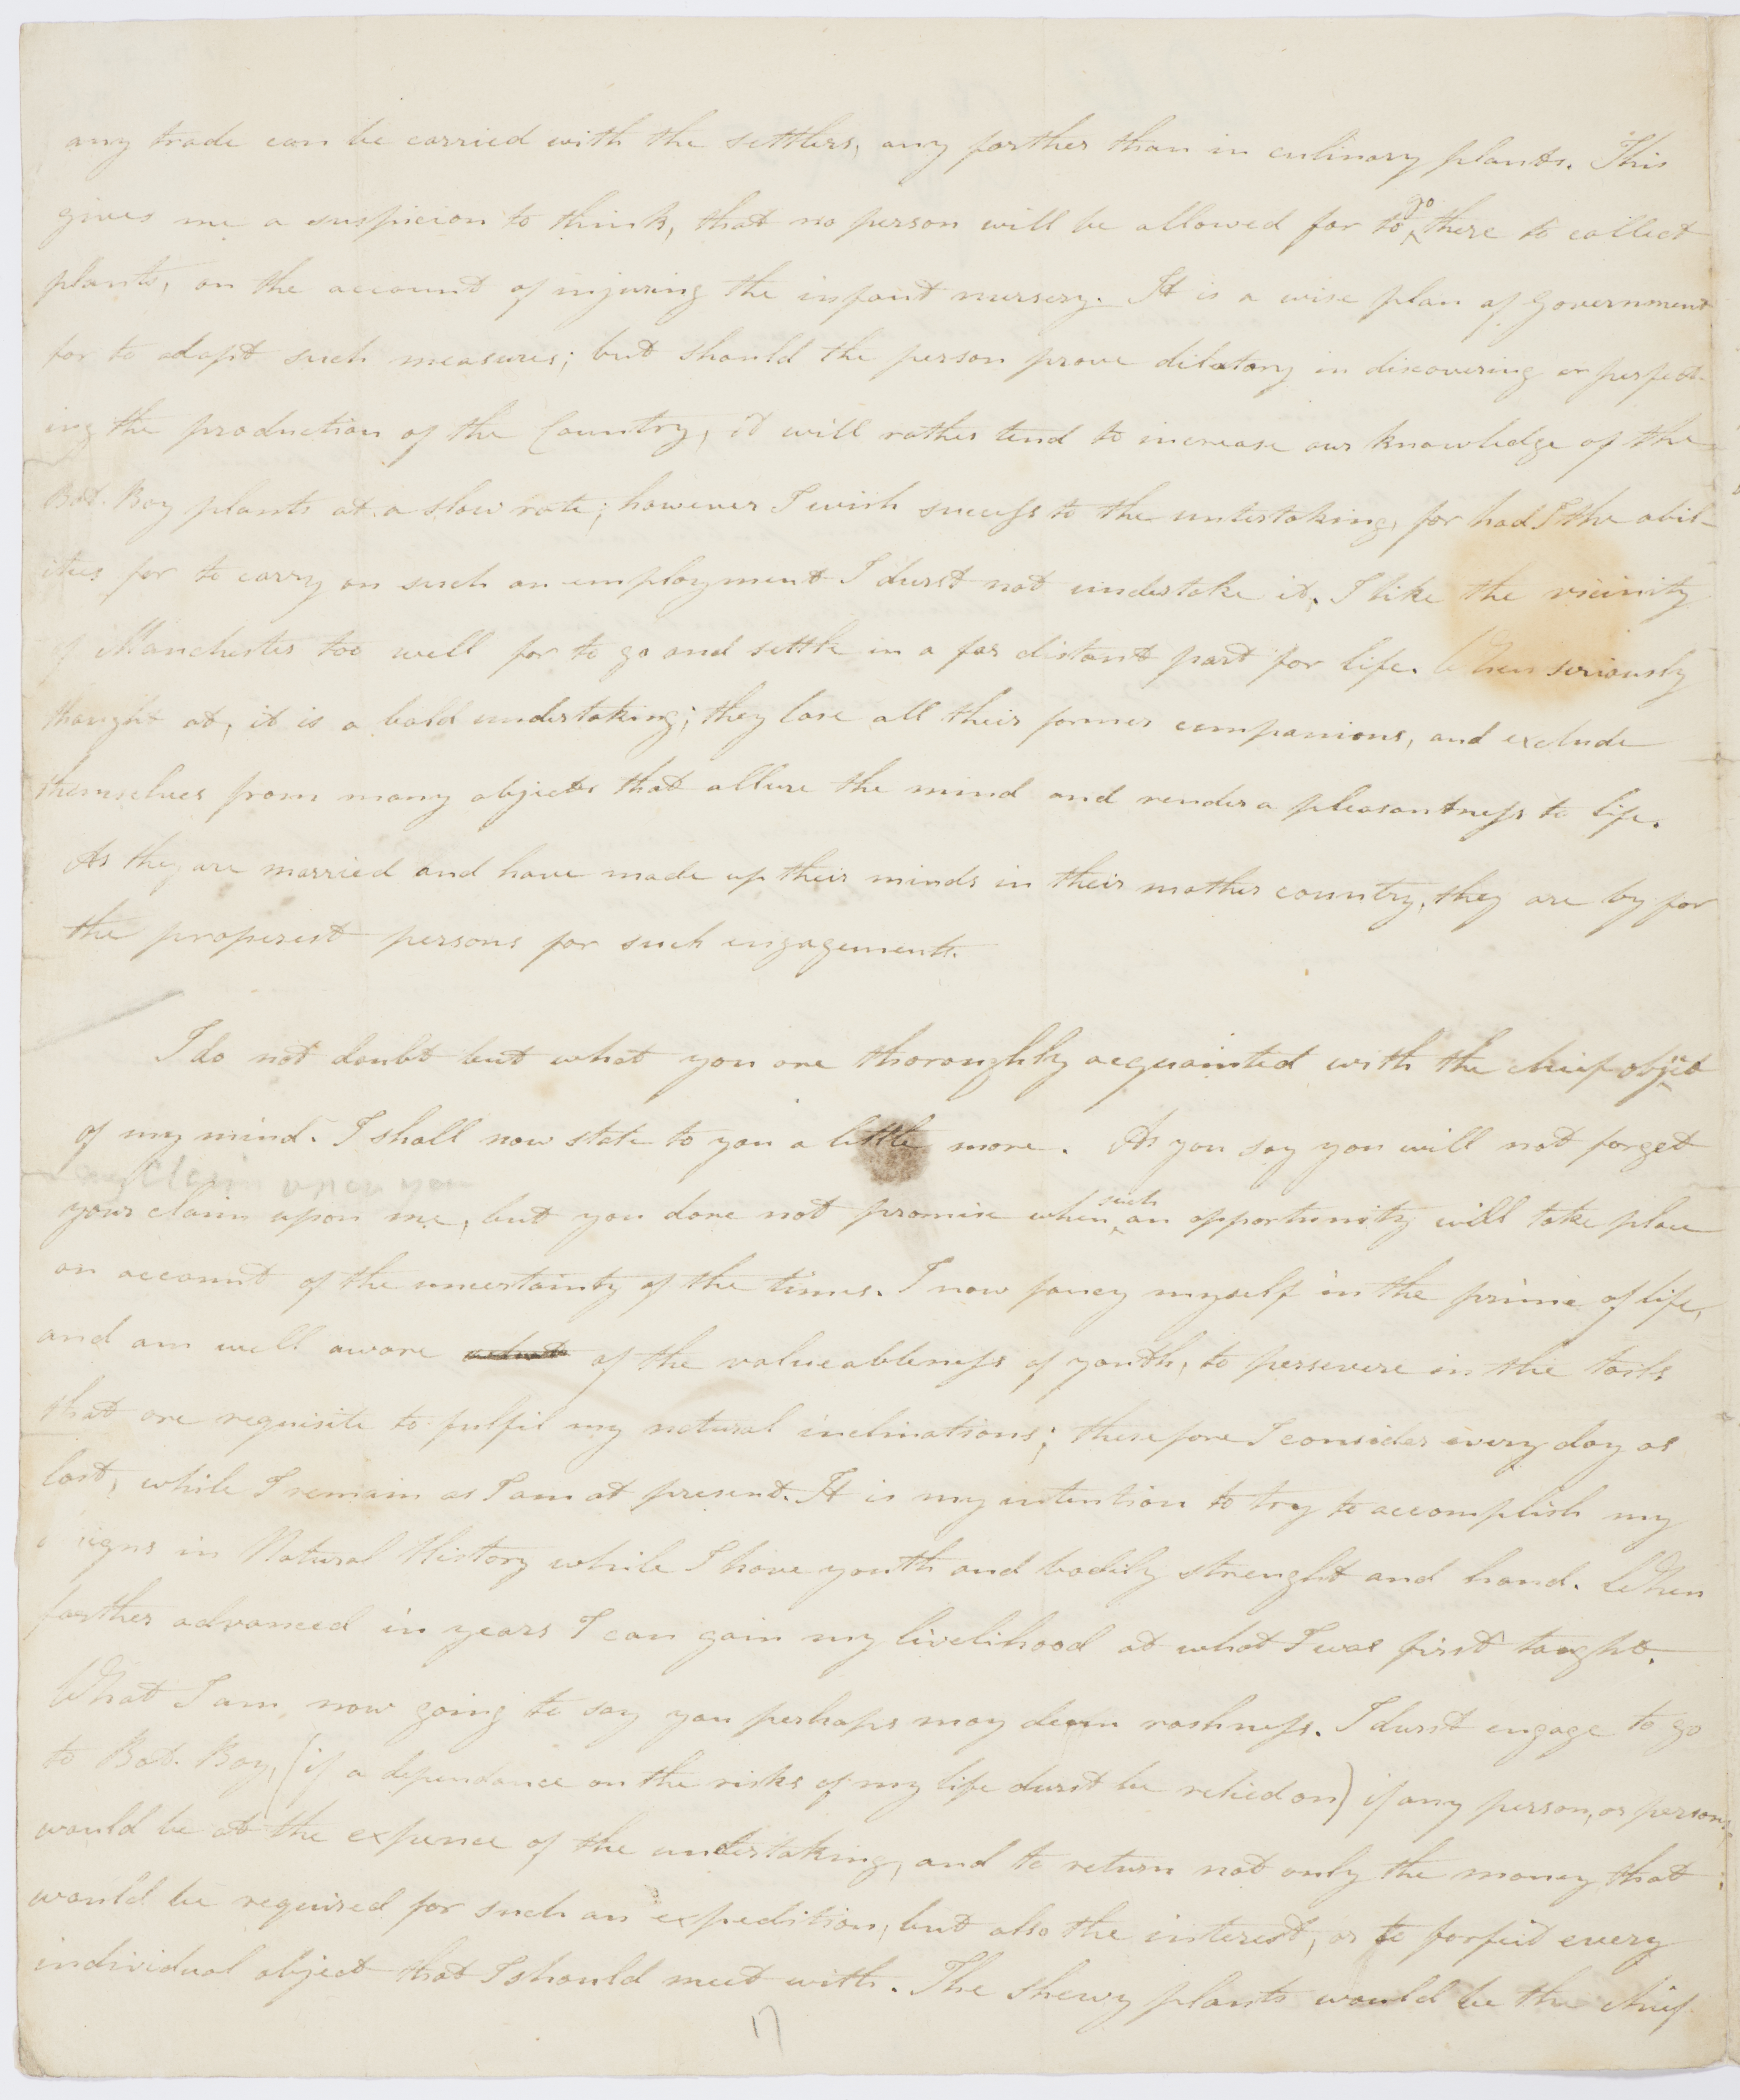 any trade can be carried with the settlers, any farther than in culinary plants. This
gives me a suspicion to think, that no person will be allowed for to go there to collect
plants, on the account of injuring the infant nursery. It is a wise plan of Government
for to adopt such measures; but should the person prove dilatory in discovering or perfect-
ing the production of the Country, it will rather tend to increase our knowledge of the
Bot. Bay plants at a slow rate; however I wish success to the undertaking, for had I the abil-
ities for to carry on such an employment I durst not undertake it, I like the vicinity
of Manchester too well for to go and settle in a far distant part for life. When seriously
thought at, it is a bold undertaking; they lose all their former companions, and exclude
themselves from many objects that allure the mind and render a pleasantness to life.
As they are married and have made up their minds in their mother country, they are by far
the properest persons for such engagements.
I do not doubt but what you are thoroughly acquainted with the chief object
of my mind. I shall now state to you a little more. As you say you will not forget
my Claim upon you
your claim upon me, but you dare not promise when such an opportunity will take place
on account of the uncertainty of the times. I now fancy myself in the prime of life,
and am well aware of the valueableness of youth, to persevere in the tasks
that are requisite to fulfil my natural inclinations; therefore I consider every day as
lost, while I remain as I am at present. It is my intention to try to accomplish my
signs in Natural History while I have youth and bodily strenght and hand. When
farther advanced in years I can gain my livelihood at what I was first taught.
What I am now going to say you perhaps may deem rashness. I durst engage to go
to Bot. Bay, (if a dependance on the risks of my life durst be relied on) if any person, or persons,
would be at the expence of the undertaking, and to return not only the money that
would be required for such an expedition, but also the interest, or to forfeit every
individual object that I should meet with. The shewy plants would be the chief
17